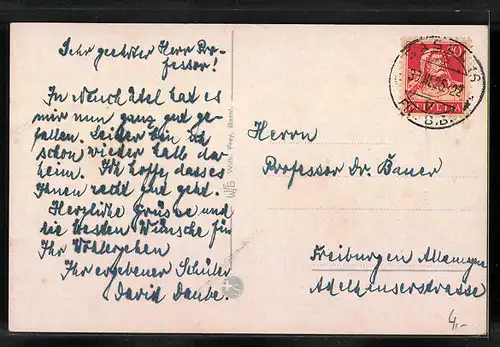 Sehr geehrter Herr Pro-
fessor!
In Neuchâtel hat es
mir nun ganz gut ge-
fallen. Leider bin ich
schon wieder halb da-
heim. Ich hoffe, dass es
Ihnen recht gut geht.
Herzliche Grüsse und
die besten Wünsche für
Ihr Wohlergehen
Ihr ergebener Schüler
David Daube.
Wilh. Frey, Basel.
Herrn
Professor Dr. Bauer
Freiburg en Allemagne
Adelhauserstrasse
20
HELVETIA
4,-